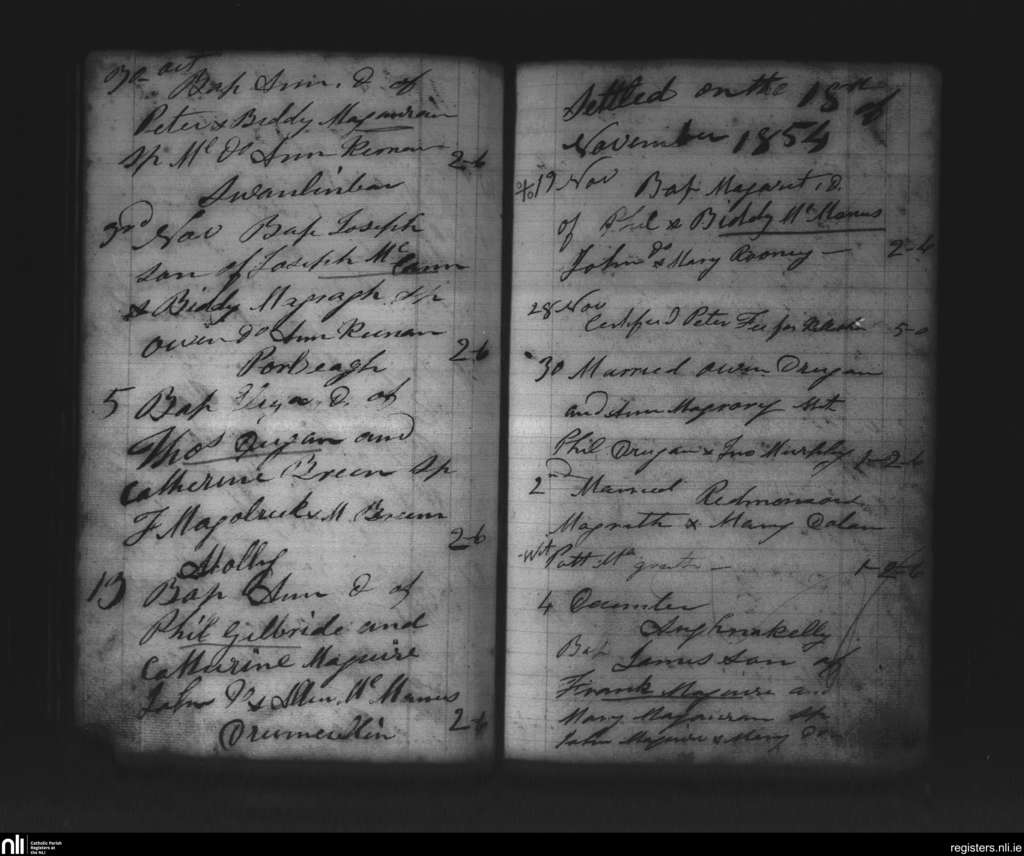 30 Oct
Bap Ann. d. of
Peter & Biddy Magauran
Sp Mc do Ann Keenan 2-6
Swanlinbar
3rd Nov Bap Joseph
son of Joseph Mc Cann
& Biddy Magragh Sp
Owen do Ann Keenan 2-6
Porbeagh
5 Bap d. of
Thos Dugan and
Catherine Breen Sp
F & M Breen 2-6
Holly
13 Bap Ann d of
Phil Gilbride and
Catherine Maguire
John do & Mc Manus 2-6
Settled on the 18th of
November 1854
19 Nov Bap Magaret, d.
of Phil & Biddy Mc Manus
John do & Mary Rooney — 2-6
28 Nov
Certified Peter Fee for 5-0
30 Married Owen Drugan
and Ann Magrory Wit
Phil Drugan & Jno Murphy 1-2-6
2nd Married Redmond
Magrath & Mary Dolan
Wit Patt Ma grath — 1-2-6
4 December
Aughnakelly
Bap James son of
Frank Maguire and
Mary Magauran Sp
John Maguire & Mary